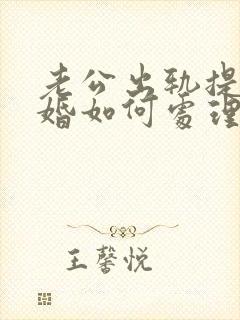 老公出轨提
婚如何处理
王馨悦